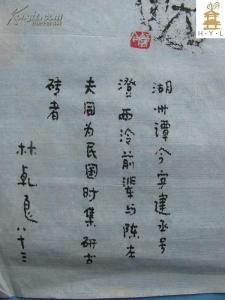 H·Y·L
湖州谭今字建丞号
澄西泠前辈与陈左
夫同为民国时集研古
砖者
林乾良八十三